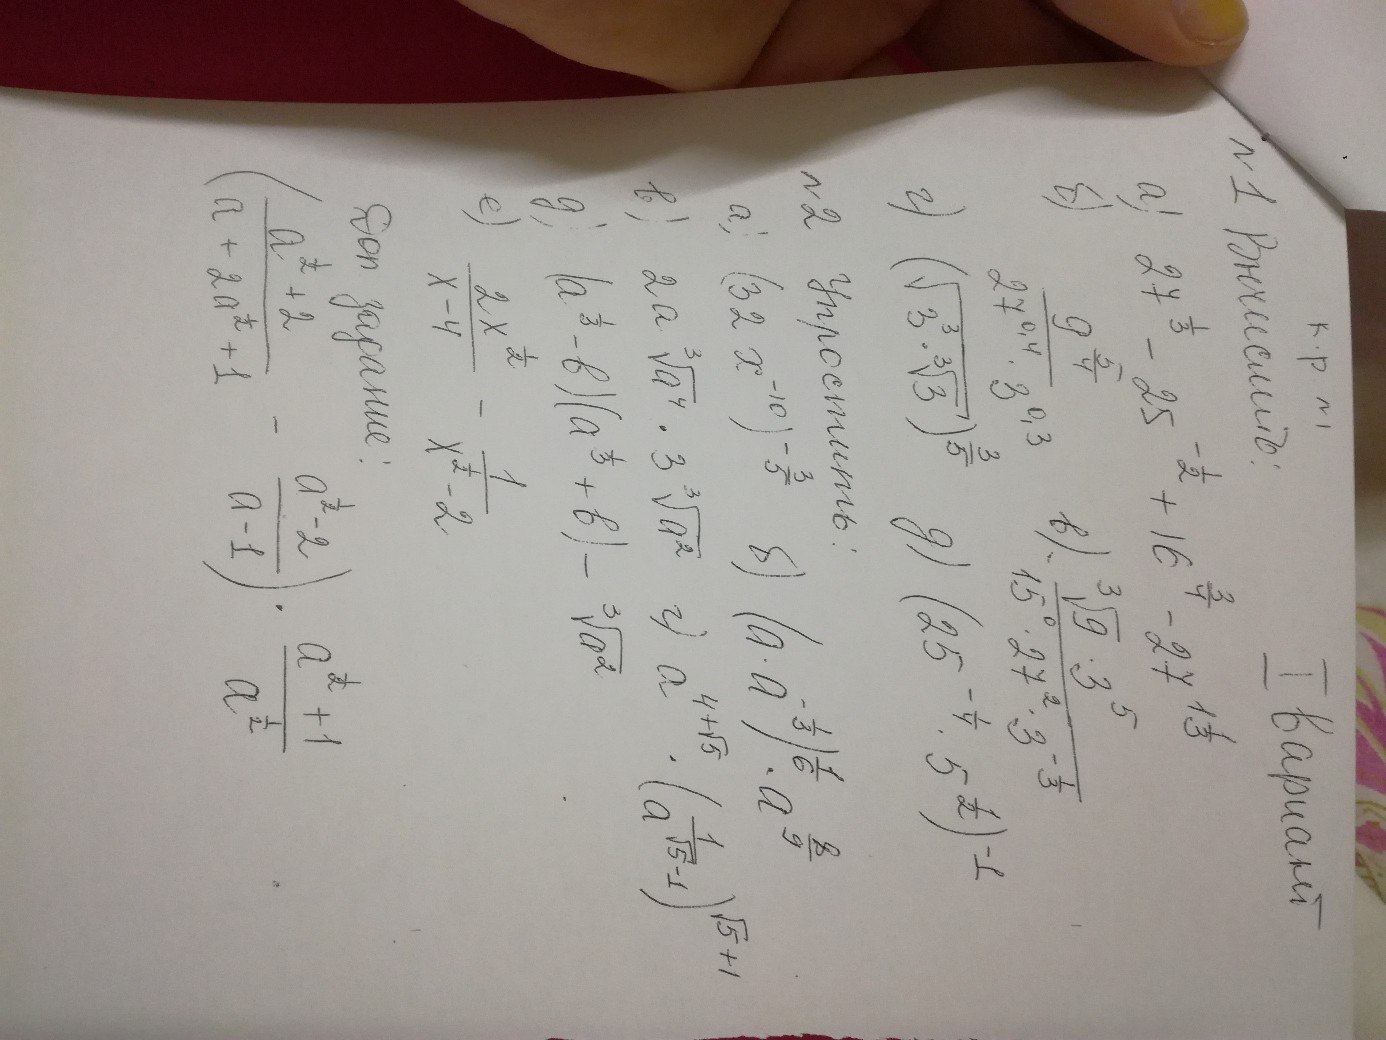 к.р №1
I вариант
№1 Вычислить:
а) 27^{1/3} - 25^{-1/2} + 16^{3/4} - 27^{1 1/3}
б) 9^{5/4} / (27^{0,4} · 3^{0,3}) в) (∛9 · 3^5) / (15^0 · 27^2 · 3^{-1/3})
г) (√(3^3 · ∛3))^{3/5} д) (25^{-1/4} · 5^{1/2})^{-1}
№2 Упростить:
а) (32x^{-10})^{-3/5} б) (a · a^{-1/3})^{1/6} · a^{8/9}
в) 2a∛a^4 · 3∛a^2 г) a^{4+√5} · (a^{1/√5-1})^{√5+1}
д) (a^{1/3} - b)(a^{1/3} + b) - ∛a^2
е) 2x^{1/2} / (x-4) - 1 / (x^{1/2}-2)
Доп задание:
((a^{1/2}+2) / (a+2a^{1/2}+1) - (a^{1/2}-2) / (a-1)) · (a^{1/2}+1) / a^{1/2}